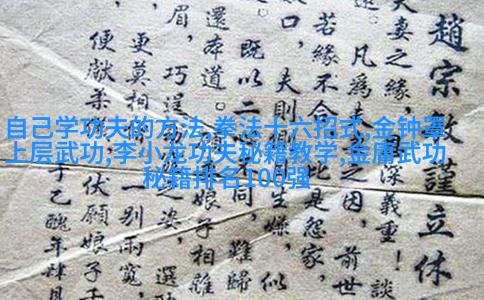 趙宗敏謹立休
夫妻之緣,深義重!談
凡為夫之因,前世
若緣不合,比是怨家,
口,夫則生嫌,似
既以二不同,難歸
還本道。娘子相離
眉,巧逞之姿,選
更莫相一別兩寬,
便獻柔伏願娘子千
于乙醜年肆月
自己学功夫的方法,拳法十六招式,金钟罩
上层武功;李小龙功夫秘籍教学,金庸武功
秘籍排名100强